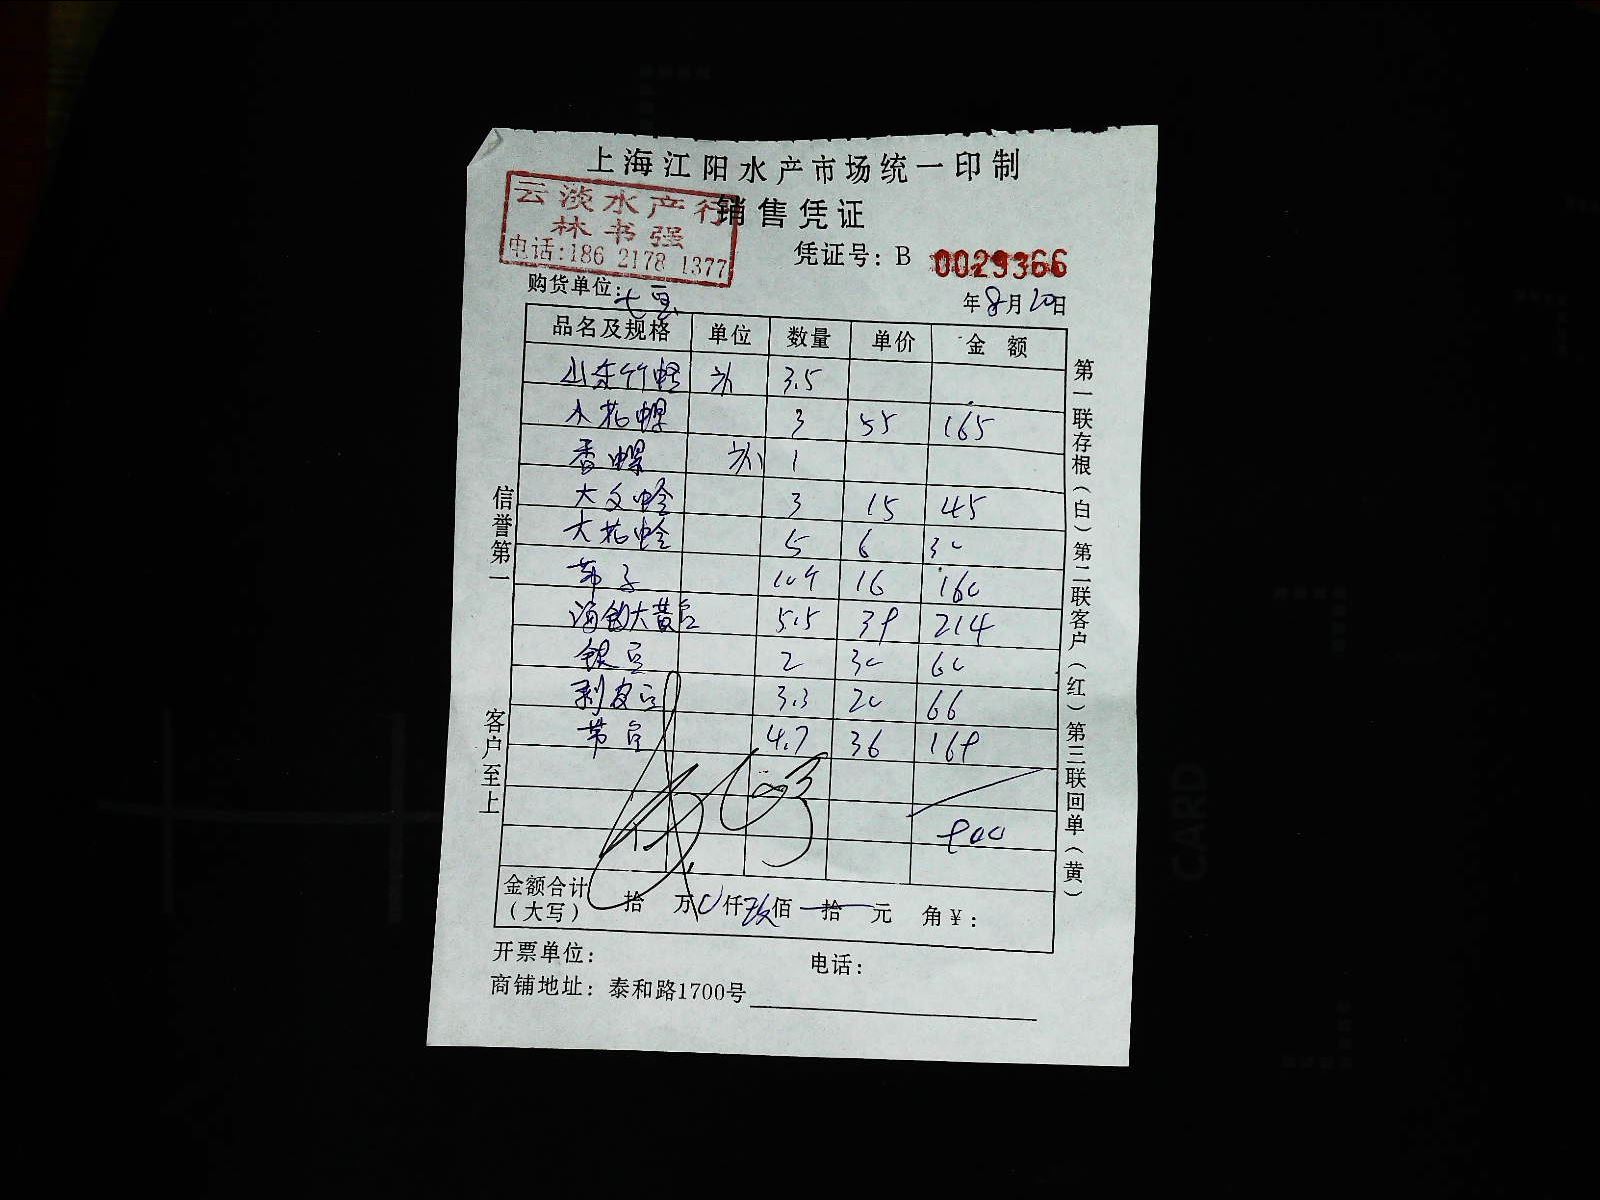 上海江阳水产市场统一印制
云淡水产行
销售凭证
林书强
电话:186 2178 1377
凭证号：B 0029366
购货单位：七
年8月20日
品名及规格 单位 数量 单价 金额
山东竹蛏 3.5
小花螺 3 55 165
香螺 1
大文蛤 3 15 45
大花蛤 5 6 30
带子 10个 16 160
大黄 5.5 39 214
银 2 30 60
剥皮 3.3 20 66
4.7 36 169
900
金额合计（大写） 拾 万 0仟玖佰 拾 元 角¥：
开票单位： 电话：
商铺地址：泰和路1700号
信誉第一
客户至上
第一联存根（白）第二联客户（红）第三联回单（黄）